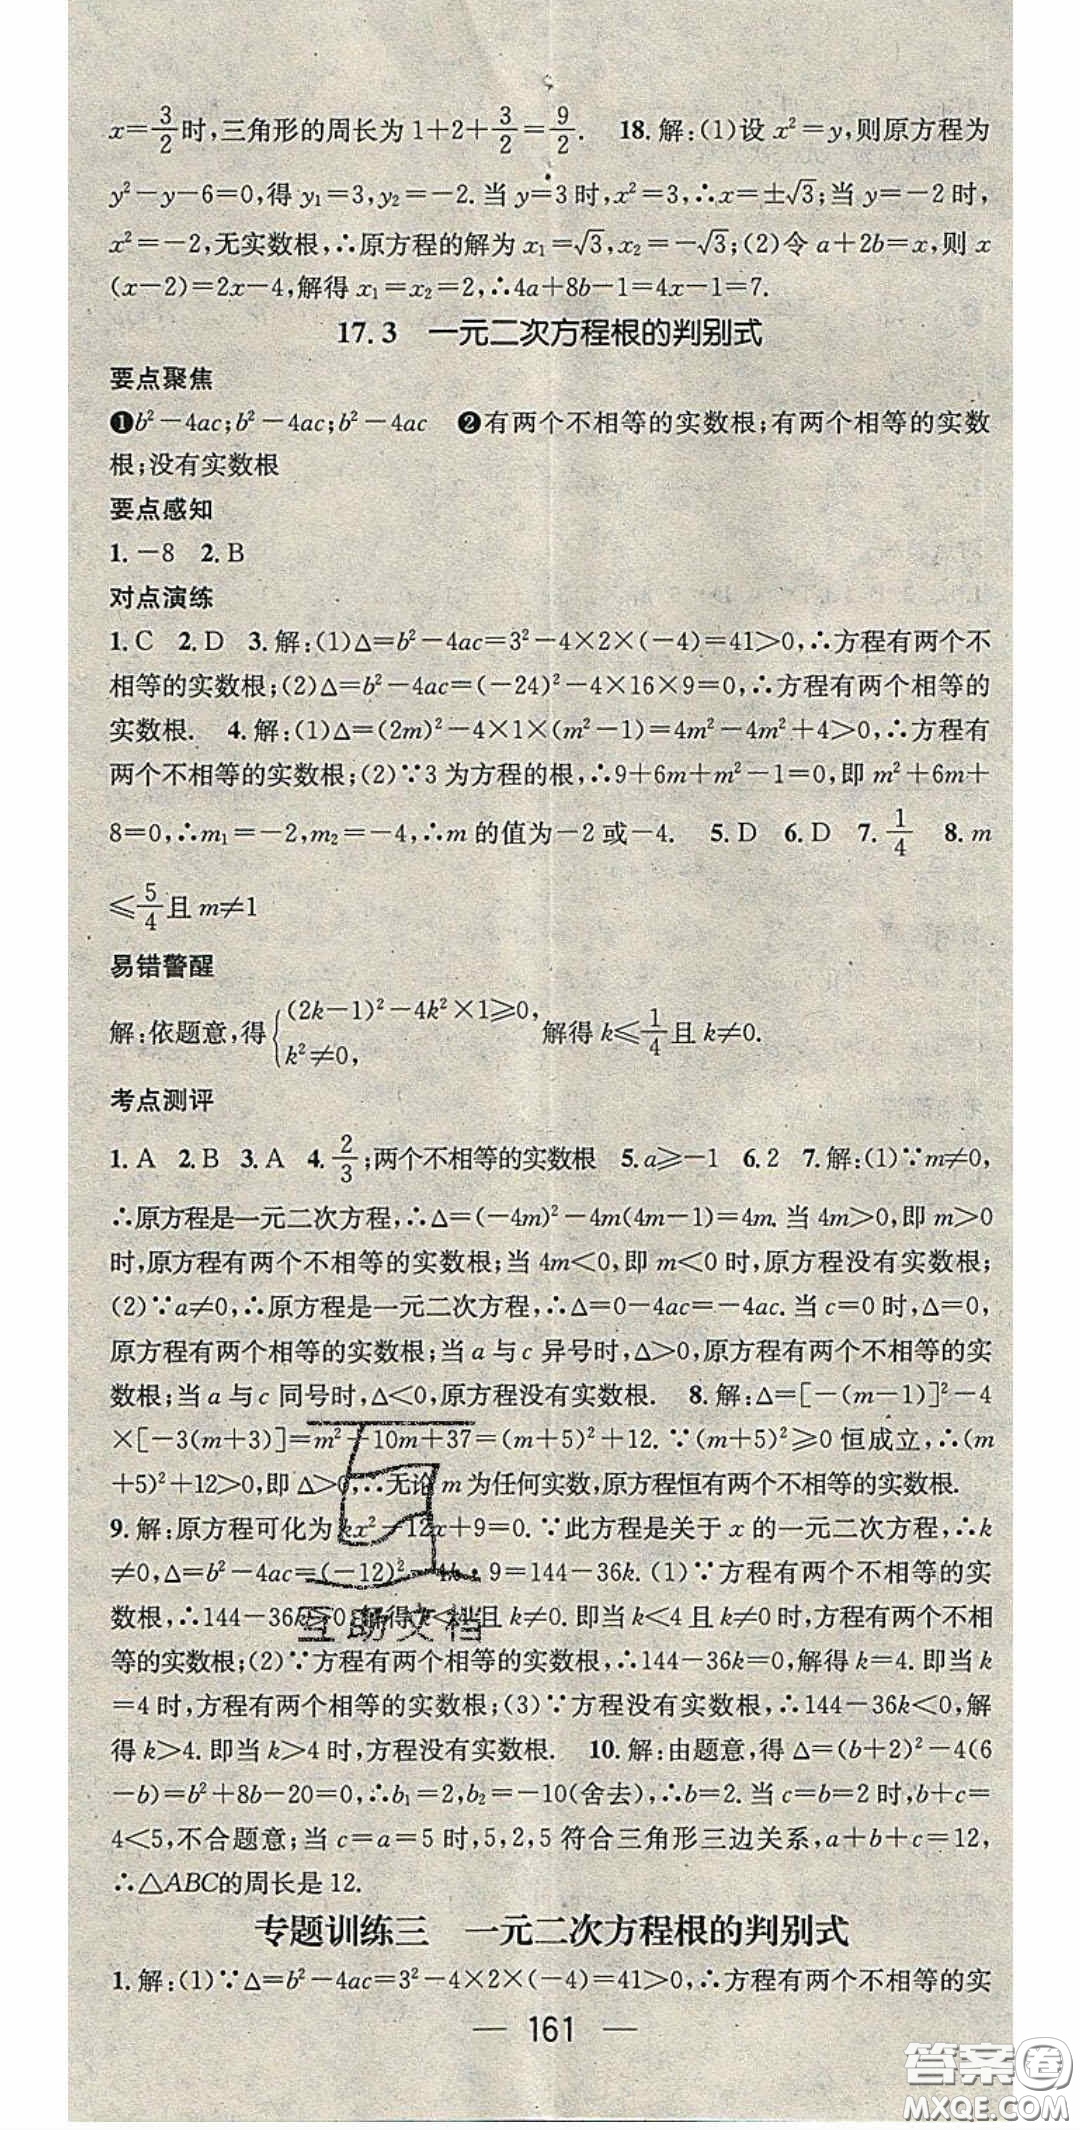 x=3/2时,三角形的周长为1+2+3/2=9/2. 18.解:(1)设x²=y,则原方程为
y²-y-6=0,得y₁=3,y₂=-2.当y=3时,x²=3,∴x=±√3;当y=-2时,
x²=-2,无实数根,∴原方程的解为x₁=√3,x₂=-√3;(2)令a+2b=x,则x
(x-2)=2x-4,解得x₁=x₂=2,∴4a+8b-1=4x-1=7.
17.3 一元二次方程根的判别式
要点聚焦
❶b²-4ac;b²-4ac;b²-4ac ❷有两个不相等的实数根;有两个相等的实数
根;没有实数根
要点感知
1.-8 2.B
对点演练
1.C 2.D 3.解:(1)Δ=b²-4ac=3²-4×2×(-4)=41>0,∴方程有两个不
相等的实数根;(2)Δ=b²-4ac=(-24)²-4×16×9=0,∴方程有两个相等的
实数根. 4.解:(1)Δ=(2m)²-4×1×(m²-1)=4m²-4m²+4>0,∴方程有
两个不相等的实数根;(2)∵3为方程的根,∴9+6m+m²-1=0,即m²+6m+
8=0,∴m₁=-2,m₂=-4,∴m的值为-2或-4. 5.D 6.D 7.1/4 8.m
≤5/4且m≠1
易错警醒
解:依题意,得{(2k-1)²-4k²×1≥0, k²≠0, 解得k≤1/4且k≠0.
考点测评
1.A 2.B 3.A 4.2/3;两个不相等的实数根 5.a≥-1 6.2 7.解:(1)∵m≠0,
∴原方程是一元二次方程,∴Δ=(-4m)²-4m(4m-1)=4m.当4m>0,即m>0
时,原方程有两个不相等的实数根;当4m<0,即m<0时,原方程没有实数根;
(2)∵a≠0,∴原方程是一元二次方程,∴Δ=0-4ac=-4ac.当c=0时,Δ=0,
原方程有两个相等的实数根;当a与c异号时,Δ>0,原方程有两个不相等的实
数根;当a与c同号时,Δ<0,原方程没有实数根. 8.解:Δ=[-(m-1)]²-4
×[-3(m+3)]=m²+10m+37=(m+5)²+12.∵(m+5)²≥0恒成立,∴(m
+5)²+12>0,即Δ>0,∴无论m为任何实数,原方程恒有两个不相等的实数根.
9.解:原方程可化为kx²-12x+9=0.∵此方程是关于x的一元二次方程,∴k
≠0,Δ=b²-4ac=(-12)²-4k·9=144-36k.(1)∵方程有两个不相等的实
数根,∴144-36k>0,解得k<4且k≠0.即当k<4且k≠0时,方程有两个不相
等的实数根;(2)∵方程有两个相等的实数根,∴144-36k=0,解得k=4.即当k
=4时,方程有两个相等的实数根;(3)∵方程没有实数根,∴144-36k<0,解
得k>4.即当k>4时,方程没有实数根. 10.解:由题意,得Δ=(b+2)²-4(6
-b)=b²+8b-20=0,∴b₁=2,b₂=-10(舍去),∴b=2.当c=b=2时,b+c=
4<5,不合题意;当c=a=5时,5,2,5符合三角形三边关系,a+b+c=12,
∴△ABC的周长是12.
互助文档
专题训练三 一元二次方程根的判别式
1.解:(1)∵Δ=b²-4ac=3²-4×2×(-4)=41>0,∴方程有两个不相等的实
— 161 —
答案圈
MXQE.COM